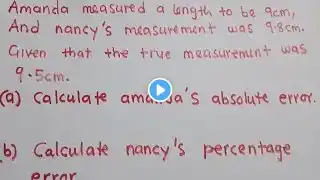 Amanda measured a length to be 9cm,
And nancy's measurement was 9.8cm.
Given that the true measurement was
9.5cm.
(a) Calculate amanda's absolute error.
b) Calculate nancy's percentage
error